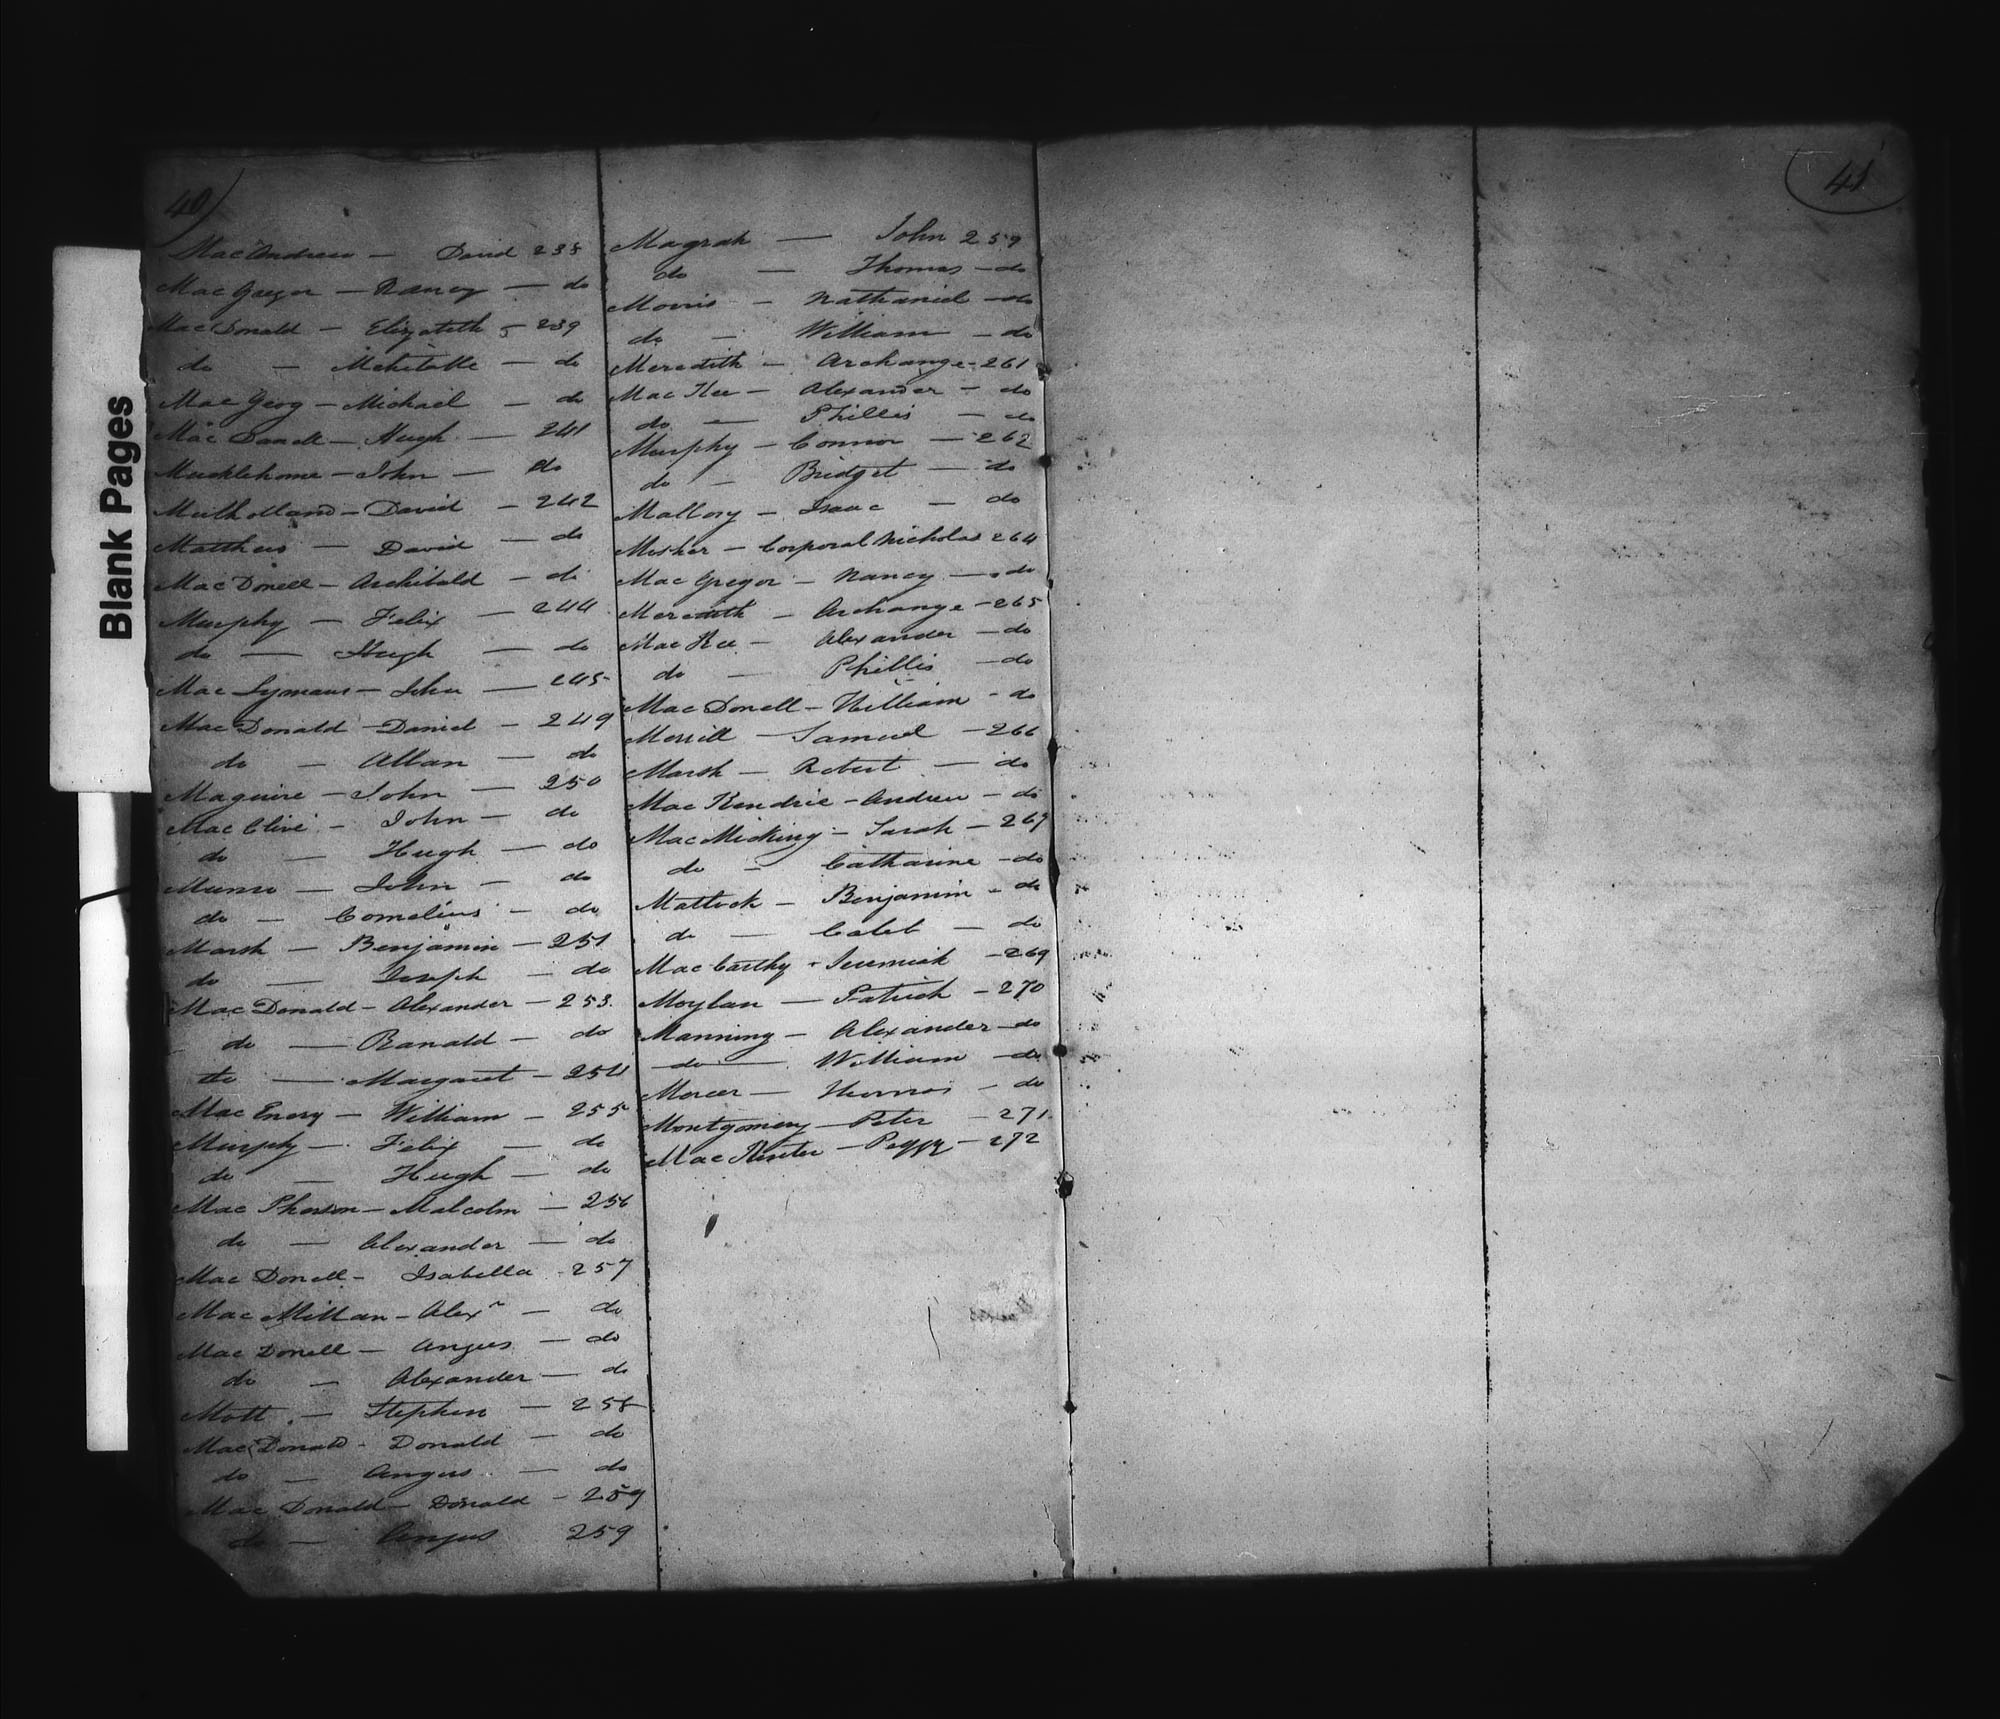 40)
Mac Andrew — David 238
Mac Gregor — Nancy — do
Mac Donald — Elizabeth — 239
do — Mehitable — do
Mac Geog — Michael — do
Mac Donell — Hugh — 241
Mucklehome — John — do
Mulholland — David — 242
Matthews — David — do
Mac Donell — Archibald — do
Murphy — Felix — 244
do — Hugh — do
Mac Lymans — John — 245
Mac Donald — Daniel — 249
do — Allan — do
Maguire — John — 250
Mac Clive — John — do
do — Hugh — do
Munro — John — do
do — Cornelius — do
Marsh — Benjamin — 251
do — Joseph — do
Mac Donald — Alexander — 253.
do — Ranald — do
do — Margaret — 254
Mac Enery — William — 255
Murphy — Felix — do
do — Hugh — do
Mac Pherson — Malcolm — 256
do — Alexander — do
Mac Donell — Isabella 257
Mac Millan — Alexr — do
Mac Donell — Angus — do
do — Alexander — do
Mott — Stephen — 258
Mac Donald - Donald — do
do — Angus — do
Mac Donald — Donald — 259
do — Angus 259
Magrah — John 259
do — Thomas — do
Morris — Nathaniel — do
do — William — do
Meredith — Archange - 261
Mac Kee — Alexander — do
do — Phillis — do
Murphy — Connor — 262
do — Bridget — do
Mallory — Isaac — do
Mosher — Corporal Nicholas 264
Mac Gregor — Nancy — do
Meredith — Archange — 265
Mac Kee — Alexander — do
do — Phillis — do
Mac Donell — William — do
Merrill — Samuel — 266
Marsh — Robert — do
Mac Kendric — Andrew — do
Mac Micking — Sarah — 267
do — Catharine — do
Mattock — Benjamin — do
do — Caleb — do
Mac Carthy - Jeremiah — 269
Moylan — Patrick — 270
Manning — Alexander — do
do — William — do
Mercer — Thomas — do
Montgomery — Peter — 271
Mac — Peggy — 272
41
Blank Pages